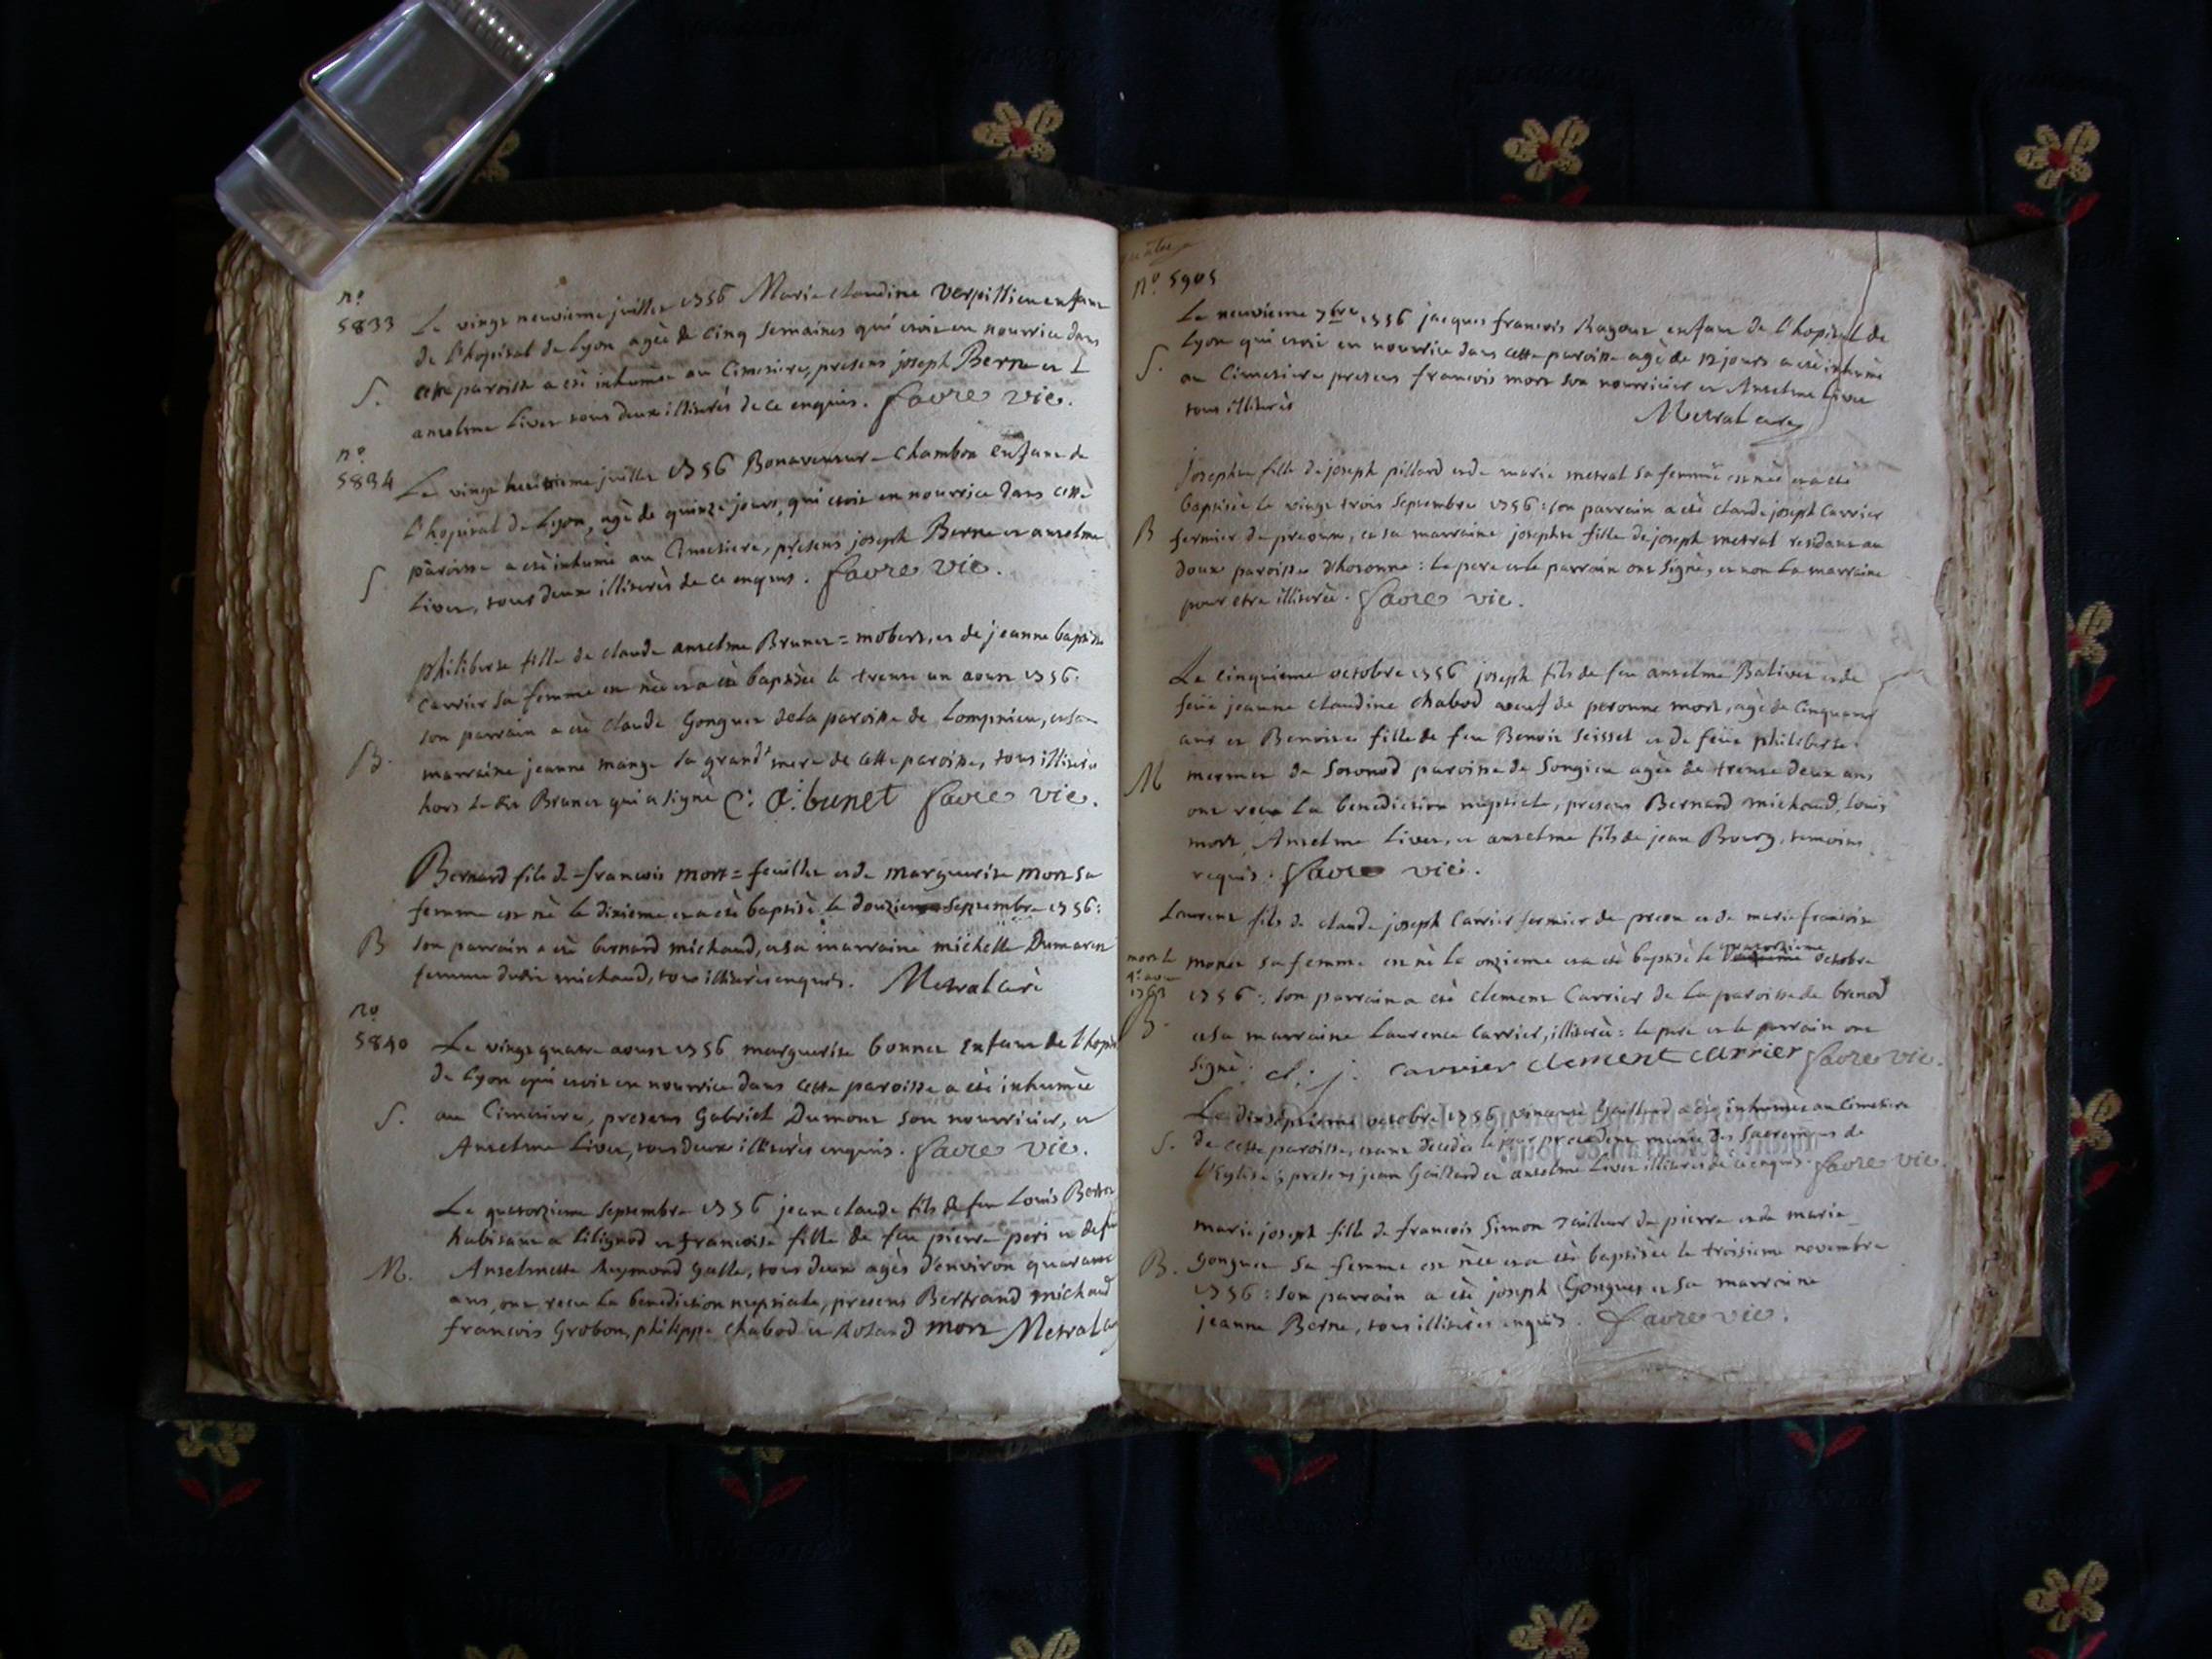 nº
5833
Le vingt neuvieme juillet 1756 Marie claudine Verpillieu enfant
de l'hopital de Lyon agèe de cinq semaines qui etoit en nourrice dans
cette paroisse a etè inhumèe au Cimetiere, presens joseph Berne et
S.
anselme Livet tous deux illiterès de ce enquis. favre vic.
nº
5834
Le vingt huitieme juillet 1756 Bonaventure Chambon enfant de
l'hopital de Lyon, agè de quinze jours, qui etoit en nourrice dans cette
paroisse a etè inhumè au Cimetiere, presens joseph Berne et anselme
S
Livet, tous deux illiterès de ce enquis. favre vic.
philiberte fille de claude anselme Brunet = mobert, et de jeanne baptiste
Carrier sa femme est nèe et a etè baptisèe le trente un aoust 1756.
son parrain a etè claude Gonguet de la paroisse de Lompnieu, et sa
B.
marraine jeanne mange sa grand' mere de cette paroisse, tous illiterès
hors le dit Brunet qui a signè C: A: bunet favre vic.
Bernard fils de francois mort = feuillet et de marguerite mort sa
femme est nè le dixieme et a etè baptisè le douzieme Septembre 1756:
B
son parrain a etè bernard michaud, et sa marraine michelle Dumaret
femme dudit michaud, tous illiterès enquis. Metral curè
nº
5840
Le vingt quatre aoust 1756 marguerite bonnet enfant de l'hopital
de Lyon qui etoit en nourrice dans cette paroisse a etè inhumèe
S.
au Cimetiere, presens Gabriel Dumont son nourricier, et
Anselme Livet, tous deux illiterès enquis. favre vic.
Le quatorzieme Septembre 1756 jean claude fils de feu Louis
habitant a Lilignod et francoise fille de feu pierre peri et de feu
M.
Anselmette Reymond Galle, tous deux agès d'environ quarante
ans, ont recu la benediction nuptiale, presens Bertrand michaud
francois Grobon, philippe Chabod et Roland mort Metral
nº 5905
Le neuvieme 7bre 1756 jacques francois Ragout enfant de l'hopital de
Lyon qui etoit en nourrice dans cette paroisse agè de 12 jours a etè inhumè
S.
au Cimetiere presens francois mort son nourricier et Anselme Livet
tous illiterès
Metral curè
josephte fille de joseph pillard et de marie metral sa femme est nèe et a etè
baptisèe le vingt trois Septembre 1756: son parrain a etè claude joseph Carrier
B
fermier de , et sa marraine josephte fille de joseph metral residant au
doux paroisse d'hotonne: le pere et le parrain ont signè, et non la marraine
pour etre illiterèe. favre vic.
Le cinquieme octobre 1756 joseph fils de feu anselme Balivet et de
feüe jeanne claudine Chabod veuf de peronne mort, agè de cinquante
ans et Benoite fille de feu Benoit Seissel et de feüe philiberte
M
mermet de Sotonod paroisse de Songieu agèe de trente deux ans
ont recu la benediction nuptiale, presens Bernard michaud, Louis
mort, Anselme Livet, et anselme fils de jean Bourg, temoins
requis. favre vic.
Laurent fils de claude joseph Carrier fermier de et de marie francoise
mort le
monet sa femme est nè le onzieme et a etè baptisè le quatorzieme octobre
1756: son parrain a etè clement Carrier de la paroisse de brenod
B.
et sa marraine Laurence Carrier, illiterèe: le pere et le parrain ont
signè. cl. j. carrier clement carrier favre vic.
Le dixseptieme octobre 1756 vincente Gaillard a etè inhumèe au Cimetiere
S.
de cette paroisse, etant decedèe le jour precedent munie des Sacremens de
l'Eglise; presens jean Gaillard et anselme Livet illiterès de ce enquis. favre vic.
marie joseph fille de francois Simon Tailleur de pierre et de marie
B.
Gonguet sa femme est nèe et a etè baptisèe le troisieme novembre
1756: son parrain a etè joseph Gonguet et sa marraine
jeanne Berne, tous illiterès enquis. favre vic.